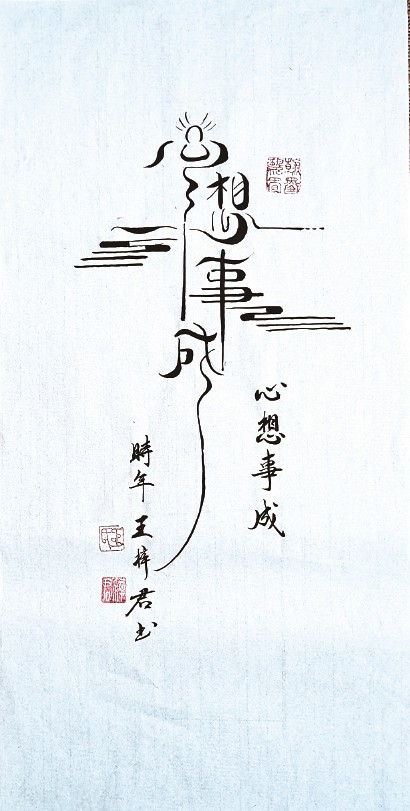 心想事成
心想事成
時年王梓君书